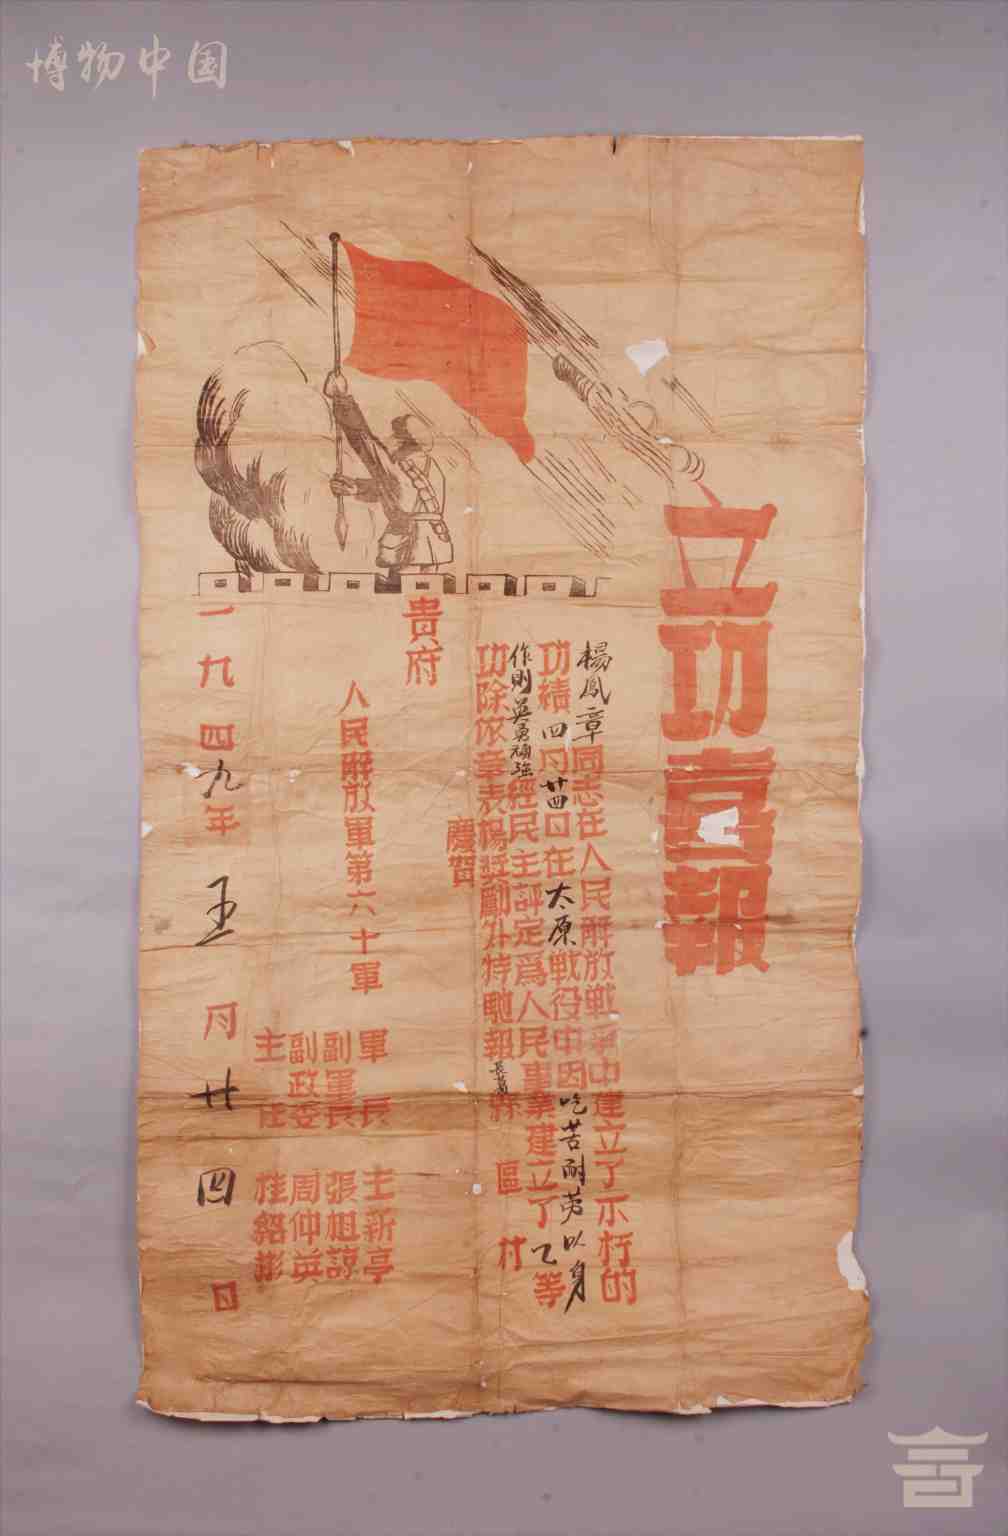 博物中国
立功喜報
楊鳳章同志在人民解放戰爭中建立了不朽的
功績四月廿四日在太原戰役中因吃苦耐劳以身
作則英勇頑強經民主評定爲人民事業建立了乙等
功除依章表楊獎勵外特馳報長葛縣 區 村
慶賀
貴府
人民解放軍第六十軍
軍長 王新亭
副軍長 張祖諒
副政委 周仲英
主任 桂紹彬
一九四九年五月廿四日